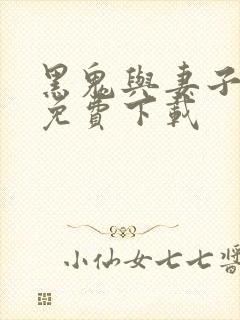 黑鬼與妻子
免費下載
小仙女七七醬